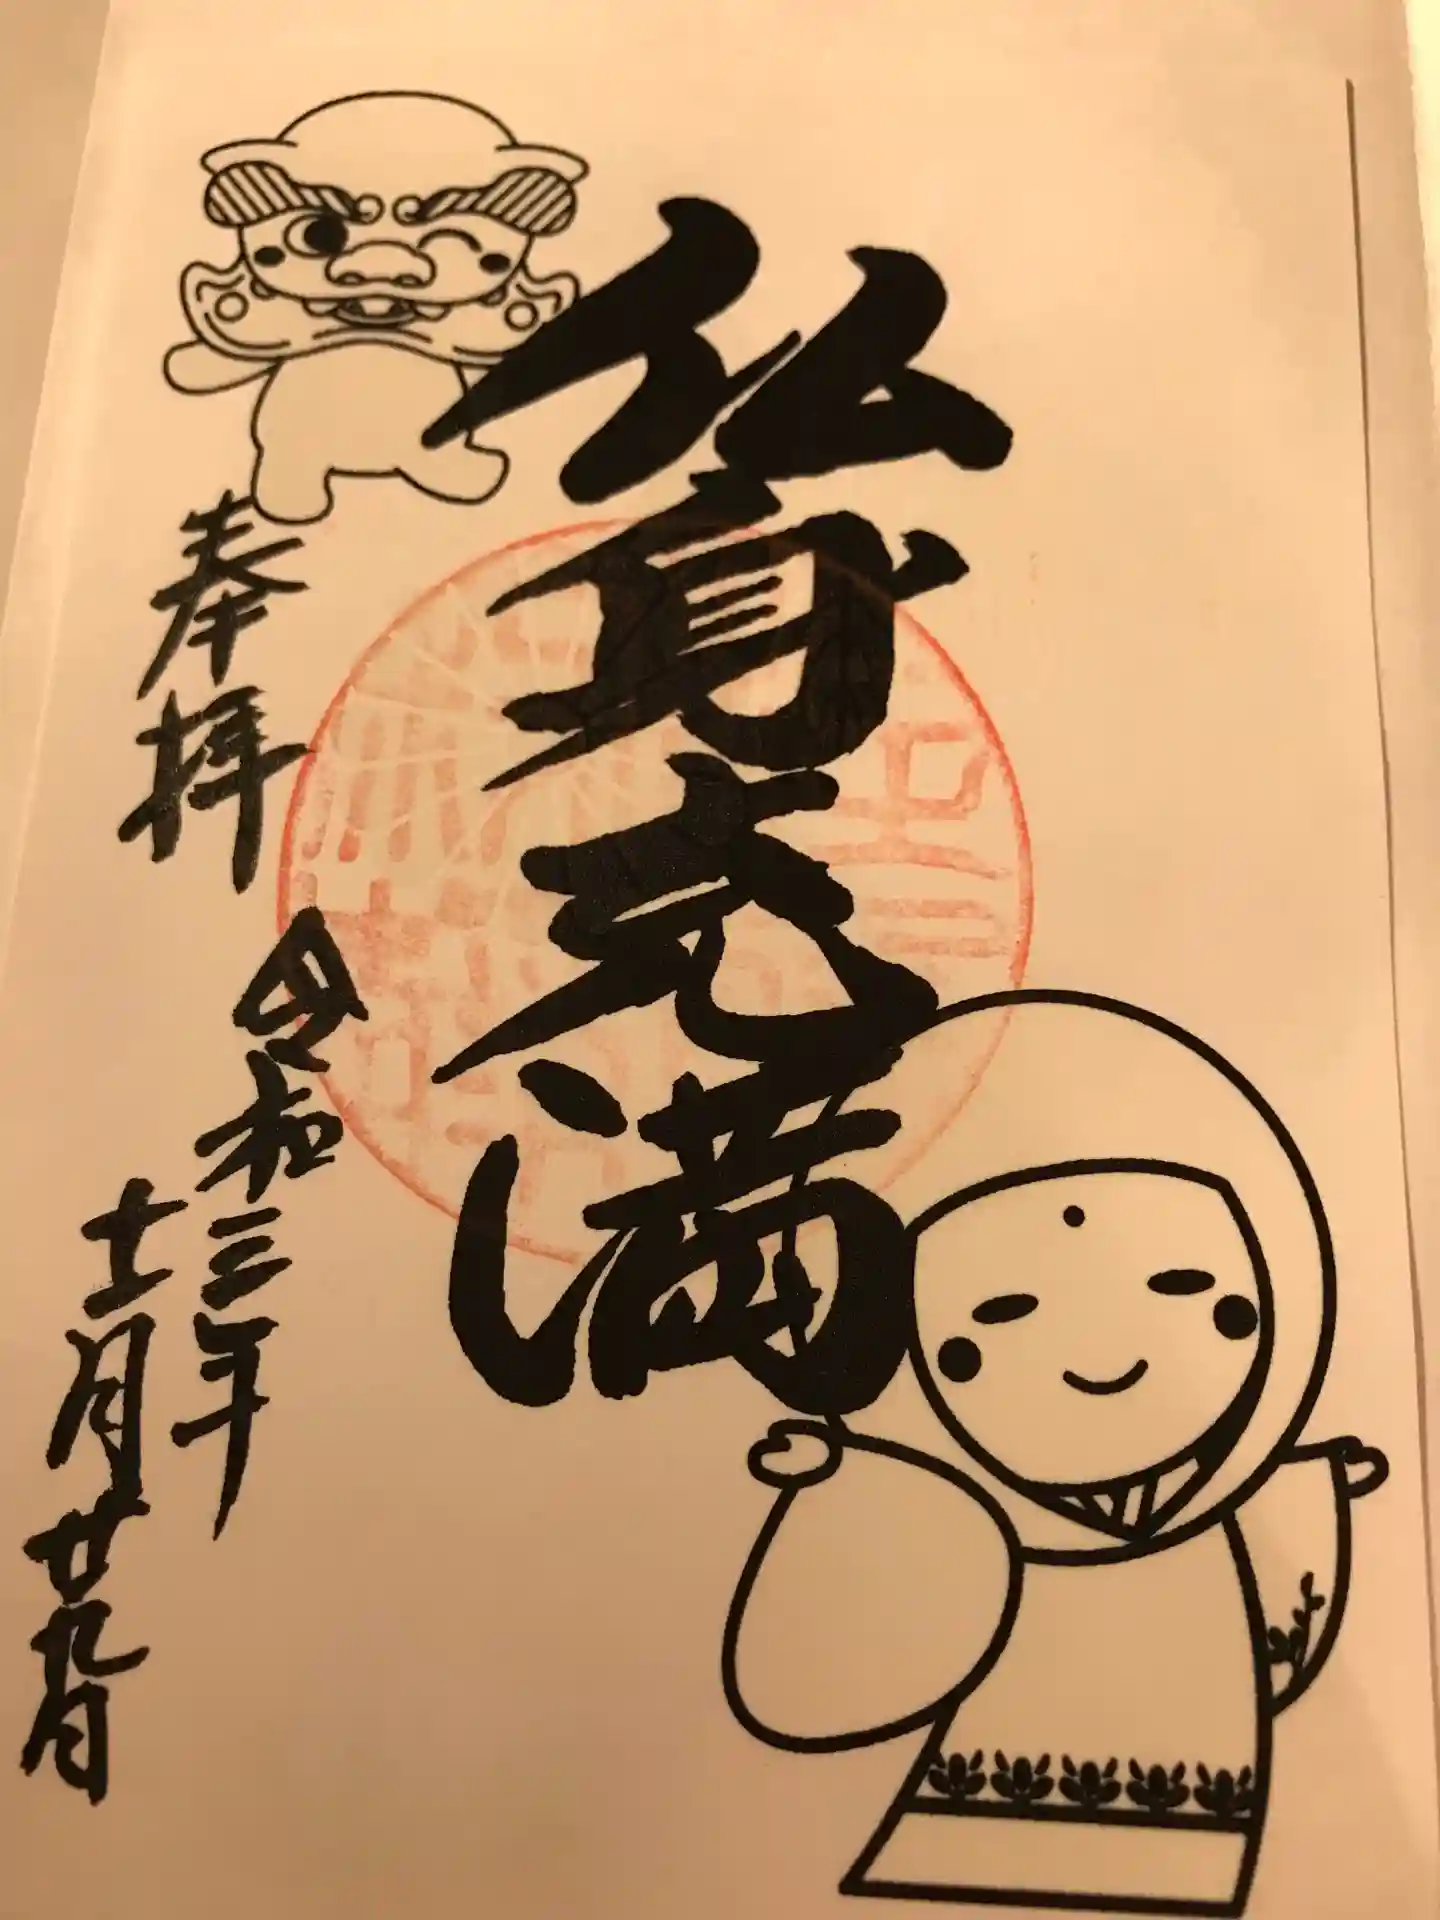 仏身充満
奉拝
令和三年
十一月廿九日